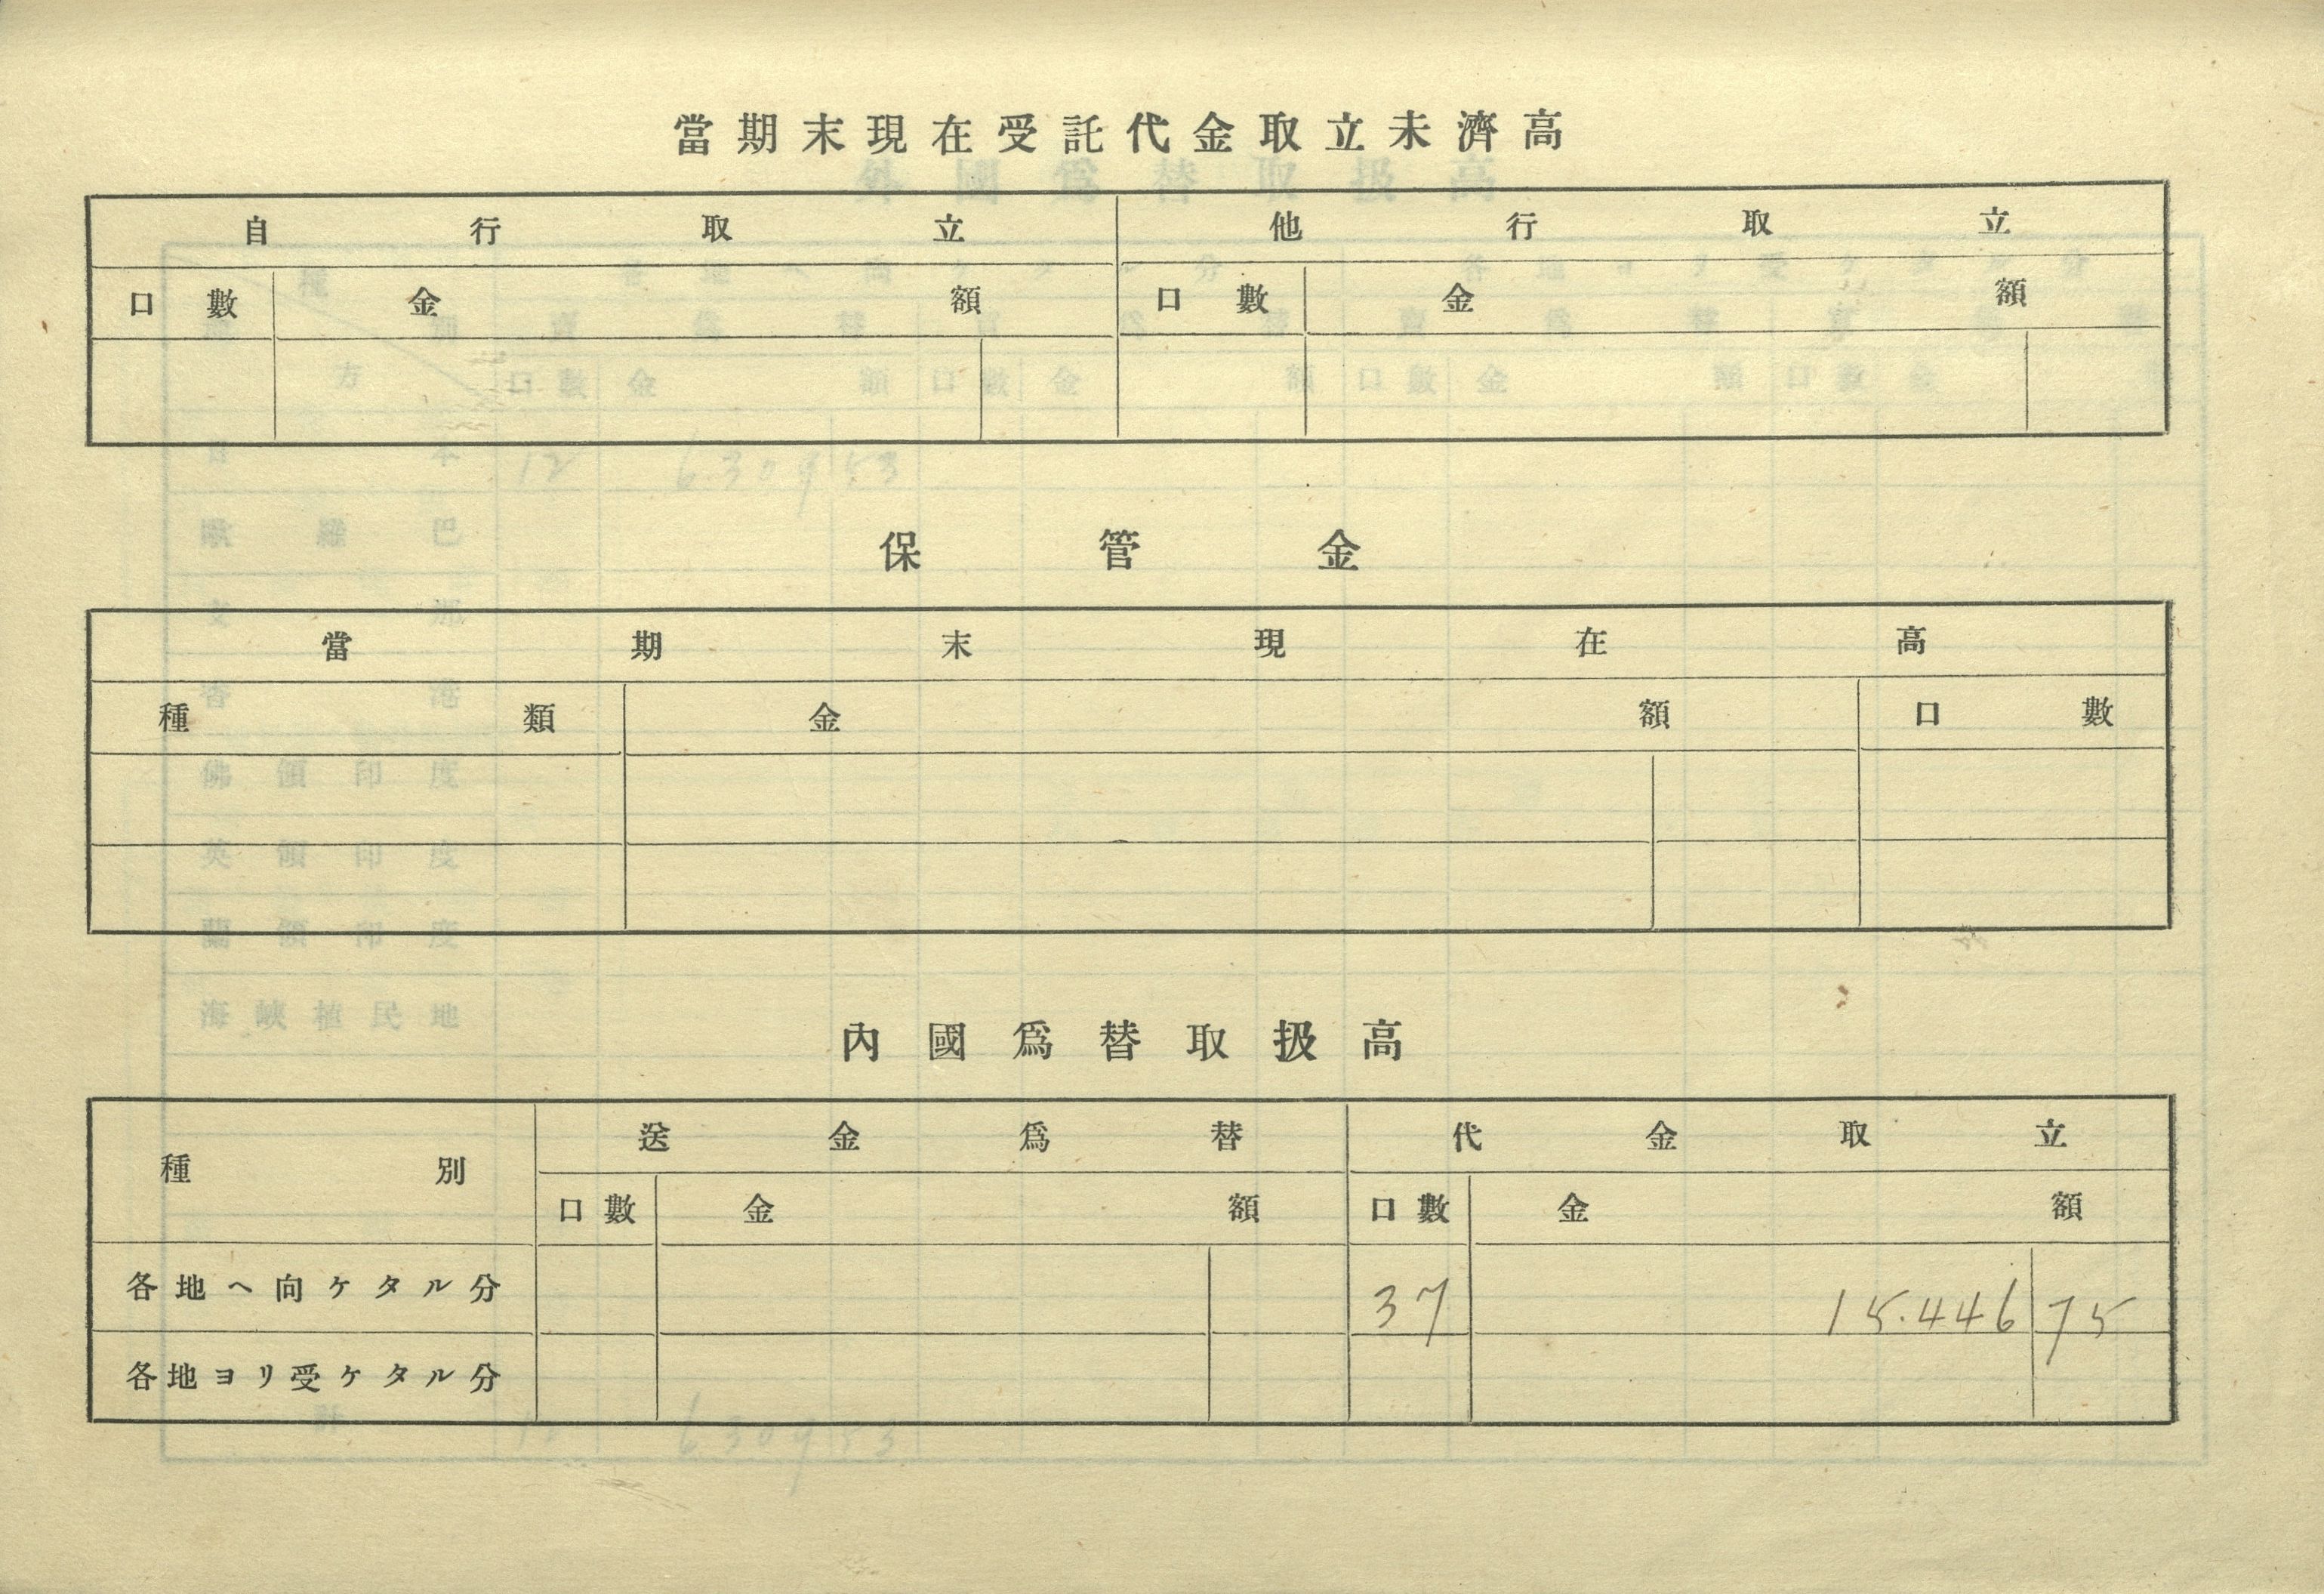 當期末現在受託代金取立未濟高
自行取立 他行取立
口數 金額 口數 金額
保管金
當期末現在高
種類 金額 口數
內國爲替取扱高
種別 送金爲替 代金取立
口數 金額 口數 金額
各地ヘ向ケタル分 37 15.446 75
各地ヨリ受ケタル分